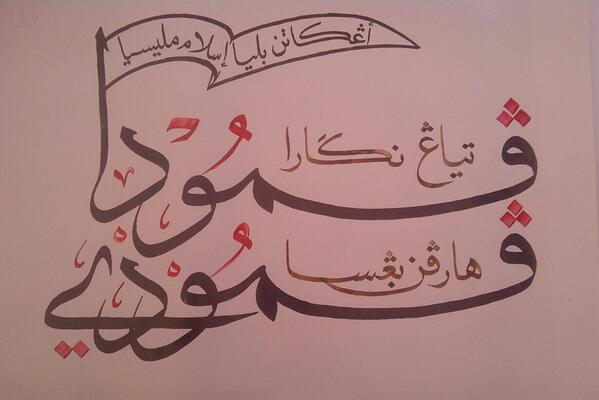 أڠكاتن بليا إسلام مليسيا
ڤمودا تياڠ نگارا
ڤمودي هارڤن بڠسا